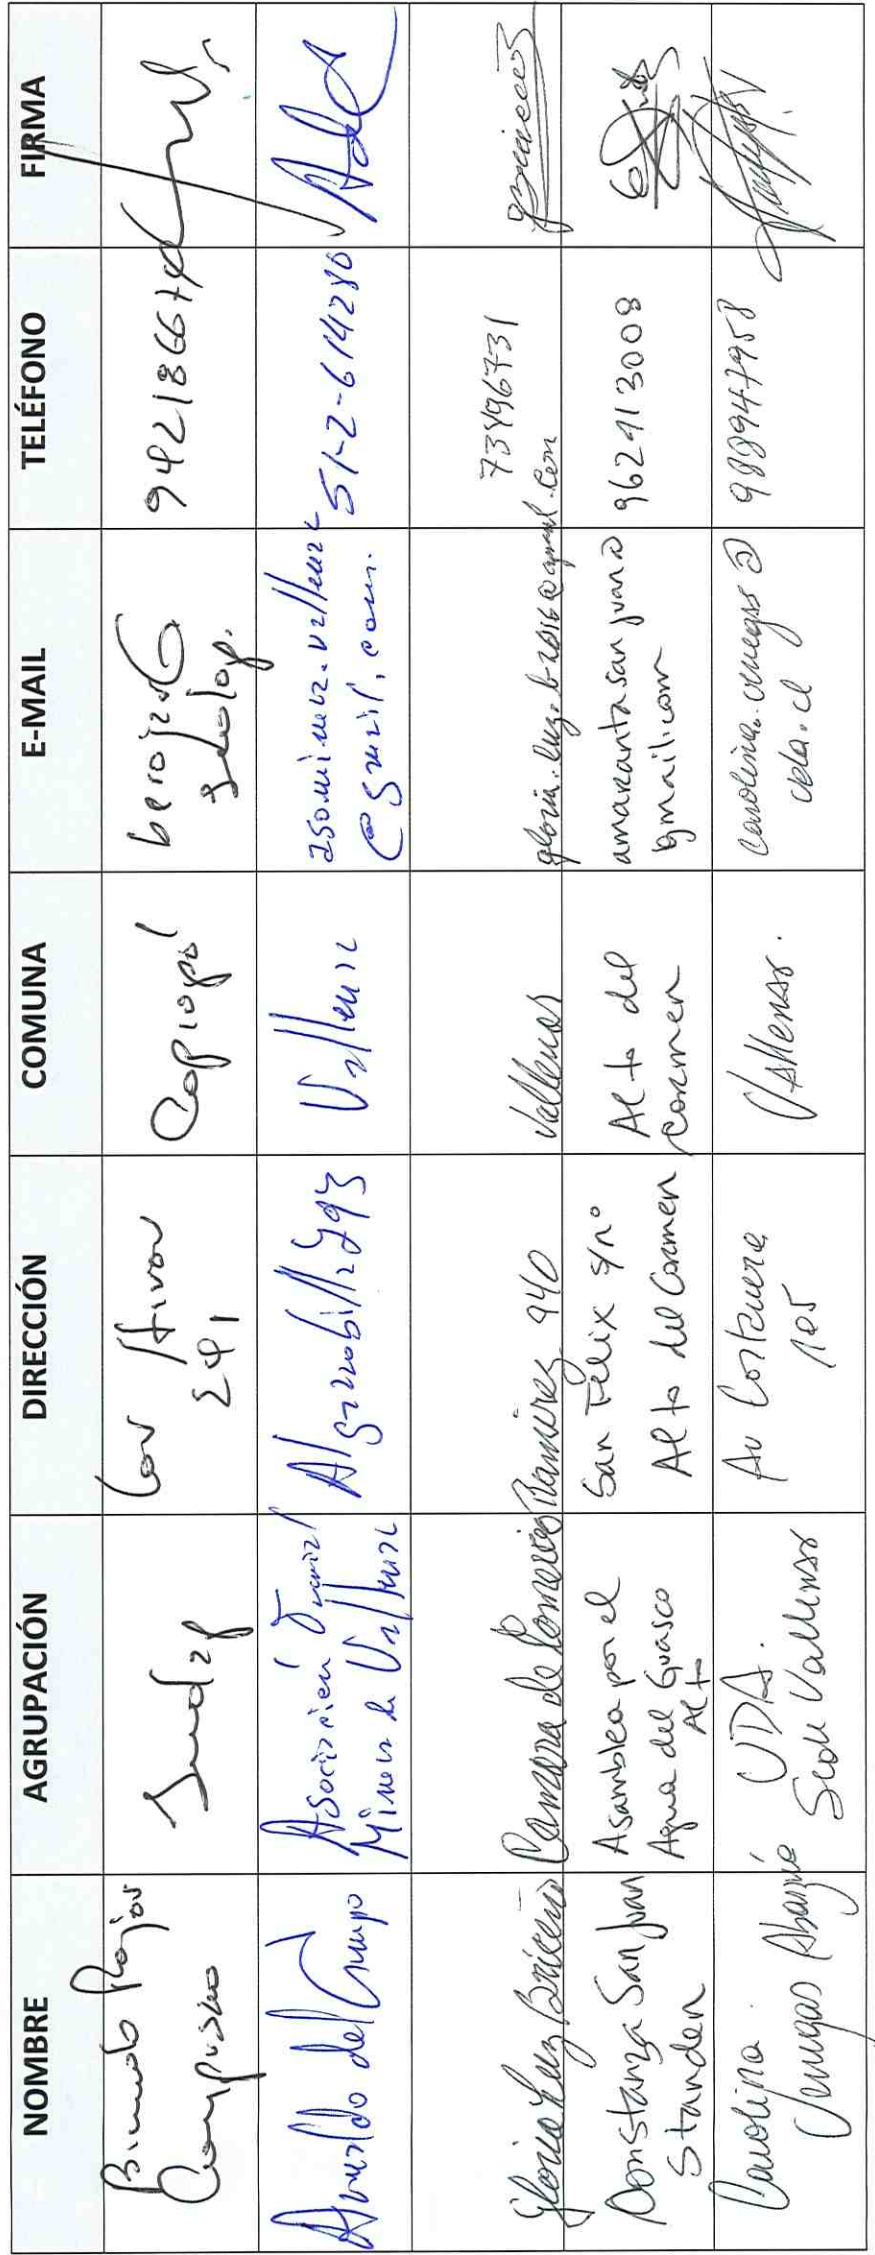 NOMBRE AGRUPACIÓN DIRECCIÓN COMUNA E-MAIL TELÉFONO FIRMA
Rojas
Copiapó
Arnaldo del Campo
Asociación
Minera de Vallenar
Algarrobilla 793
Vallenar
asominera.vallenar
@gmail.com.
51-2-614280
Gloria Luz Briceño
Camara de Comercio
Ramirez 940
Vallenar
gloria.luz.b.2016@gmail.com
73496731
Constanza San Juan
Standen
Asamblea por el
Agua del Guasco
Alto
San Félix s/n°
Alto del Carmen
Alto del
Carmen
amarantasanjuan@
gmail.com
962413008
Carolina
Venegas Abarzúa
UDA.
Sede Vallenar
Av Costanera
105
Vallenar.
carolina.venegas@
uda.cl
989947958